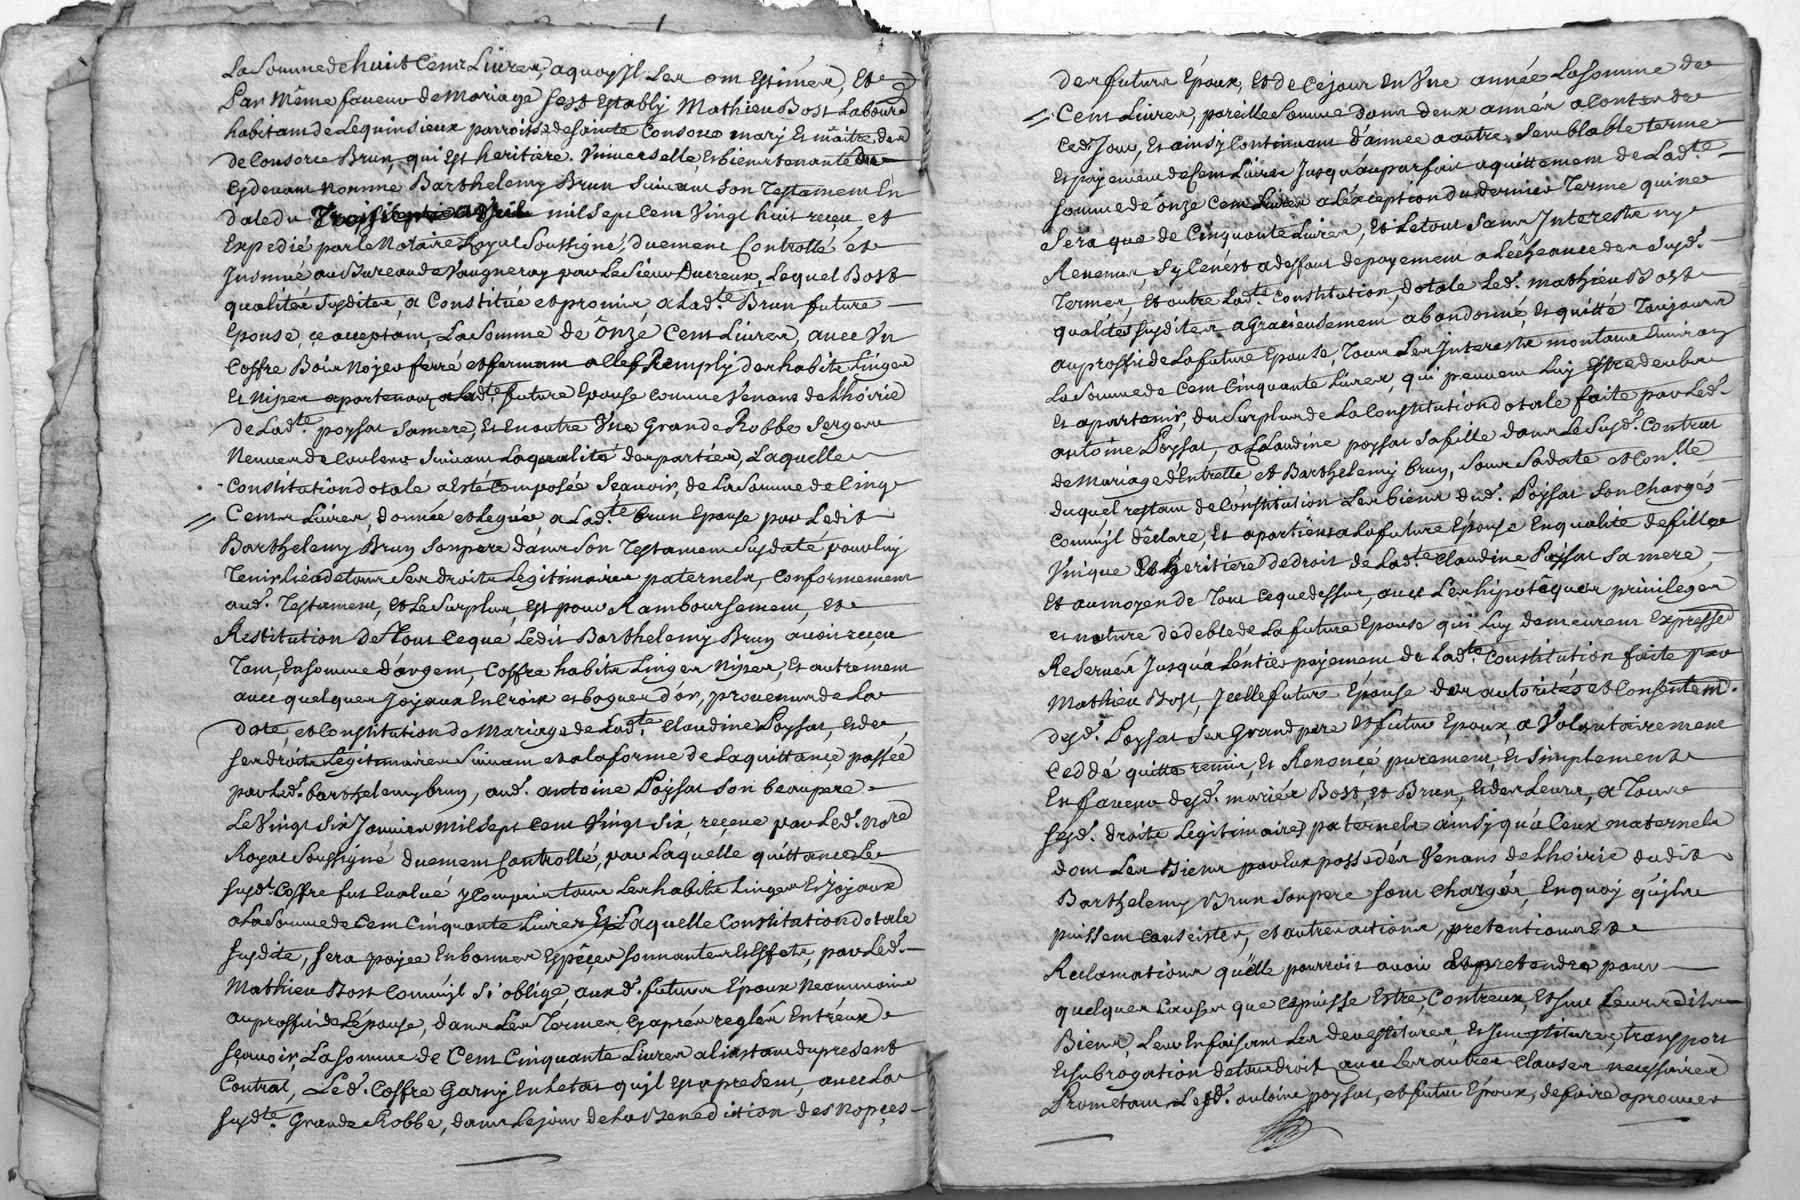 La Somme de huit Cent Livres, a quoy Il Les ont Estimés, Et
Par Même faveur de Mariage s'est Estably Mathieu Bost Laboure
habitant de Lequinsieux parroisse de Sainte Consorce mary Et maitre des
de Consorce Brun, qui Est heritiere Universelle, Et biens tenante du
Cydevant nommé Barthelemy Brun Suivant Son Testament En
date du mil Sept Cent Vingt huit reçeu, et
Expedié par le Notaire Royal Soussigné, duement Controllé et
Insinué au Bureau de Vaugneray par Le Sieur Ducreux, Lequel Bost
qualités Susdites, a Constitué et promis, a Ladte Brun future
Epouse, ce acceptant, La Somme de ônze Cent Livres, avec Un
Coffre Bois Noyer ferré et fermant a Clef Remply des habits Linges
Et Nipes apartenant a Ladte future Epouse comme Venant de Lhoirie
de Ladte poysat Sa mere, Et En outre Une Grande Robbe Serge
Neuve de Couleur Suivant La qualité des parties, Laquelle
Constitution dotale a Esté Composée Sçavoir, de La Somme de Cinq
Cents Livres, donnée et Leguée, a Ladte brun Epouse par Ledit
Barthelemy Brun Son pere dans Son Testament Susdaté pour luy
Tenir Lieu de tous Ses droits Legitimaires paternels, Conformement
aud. Testament, et Le Surplus, Est pour Ramboursement, et
Restitution de Tout Ce que Ledit Barthelemy Brun avoit reçeu
Tant En Somme d'argent, Coffre habits Linges Nipes, Et autrement
avec quelques Joyaux En Croix et bagues d'or, provenus de La
dote, et Constitution de Mariage de Ladte Claudine Poysat, et de
Ses droits Legitimaires Suivant et a la forme de La quittance passée
par Led. barthelemy brun, aud. antoine Poysat Son beaupere
Le Vingt Six Janvier Mil Sept Cent Vingt Six, reçeue par Led. Nore
Royal Soussigné duement Controllé, par Laquelle quittance Le
Susd. Coffre fut Evalué y Compris tous Les habits Linges Et Joyaux
a La Somme de Cent Cinquante Livres Et Laquelle Constitution dotale
Susdite, Sera payée En bonnes Espêces Sonnantes et Effets, par Led.
Mathieu Bost Comm'jl S'oblige, aux d. futurs Epoux Neanmoins
au proffit de L'épouse, dans Les Termes Cy aprés reglés Entr'eux
Sçavoir, La Somme de Cent Cinquante Livres a L'instant du present
Contrat, Led. Coffre Garny En Letat qu'jl Est a present, avec La
Susdte Grande Robbe, dans Le jour de La Benediction des Nopçes
des futurs Epoux, Et de Ce jour En Une année La Somme de
Cent Livres, pareille Somme dans deux années a Conter de
Ced. Jour, Et ainsy Continuant d'année a autre, Semblable terme
Et payement de Cent Livres Jusqu'au parfait aquittement de Ladte
Somme de ônze Cent Livres a L'exception du dernier Terme qui ne
Sera que de Cinquante Livres, Et Le tout Sans Interests ny
Revenus, Sy Ce n'est a deffaut de payement a L'echeance des Susd.
Termes, Et outre Ladte Constitution dotale Led. mathieu Bost
qualités Susdites a Gracieusement abandonné, Et quitté Toujours
au proffit de La future Epouse, Tous Les Interests montant Environ
La Somme de Cent Cinquante Livres, qui peuvent Luy Estre deubs
Et apartenir, du Surplus de La Constitution dotale faite par Led.
antoine Poysat, a Claudine poysat Sa fille dans Le Susd. Contrat
de Mariage d'Entr'elle et Barthelemy brun, Sous Sa date et Conlle
duquel restant de Constitution Les biens dud. Poysat Son Charges
Comm'jl déclare, Et apartient a La future Epouse En qualité de fille
Unique Et heritiere de droit de Ladte Claudine Poysat Sa mere,
Et au moyen de Tout Ce que dessus, avec Les hipotêques privileges
et nature de deble de La future Epouse qui Luy demeurent Expressed
Reservés Jusqu'a L'entier payement de Ladte Constitution faite par
Mathieu Bost, Jcelle future Epouse des autorités et Consentemt.
desd. Poysat Ses Grand pere Et futur Epoux a Volontairement
Ceddé quitté remis, Et Renonçé purement Et Simplement
En faveur desd. mariés Bost, et Brun, et des Leurs, a Tous
Sesd. droits Legitimaires paternels ainsy qu'a Ceux maternels
dont Les Biens par Eux possedés Venans de Lhoirie dudit
Barthelemy Brun Son pere Sont Chargés, En quoy qu'jls
puissent Consister, et autres actions, pretentions Et
Reclamations qu'Elle pourroit avoir Et pretendre pour
quelques Causes que Ce puisse Estre, Contr'eux, Et Sur Leursdits
Biens, Leur En faisant Les devestitures, Et Investitures, transport
Et Subrogation de tous droit avec Les autres Clauses necessaires
Prometant Lesd. antoine poysat, et futur Epoux, de faire aprouver